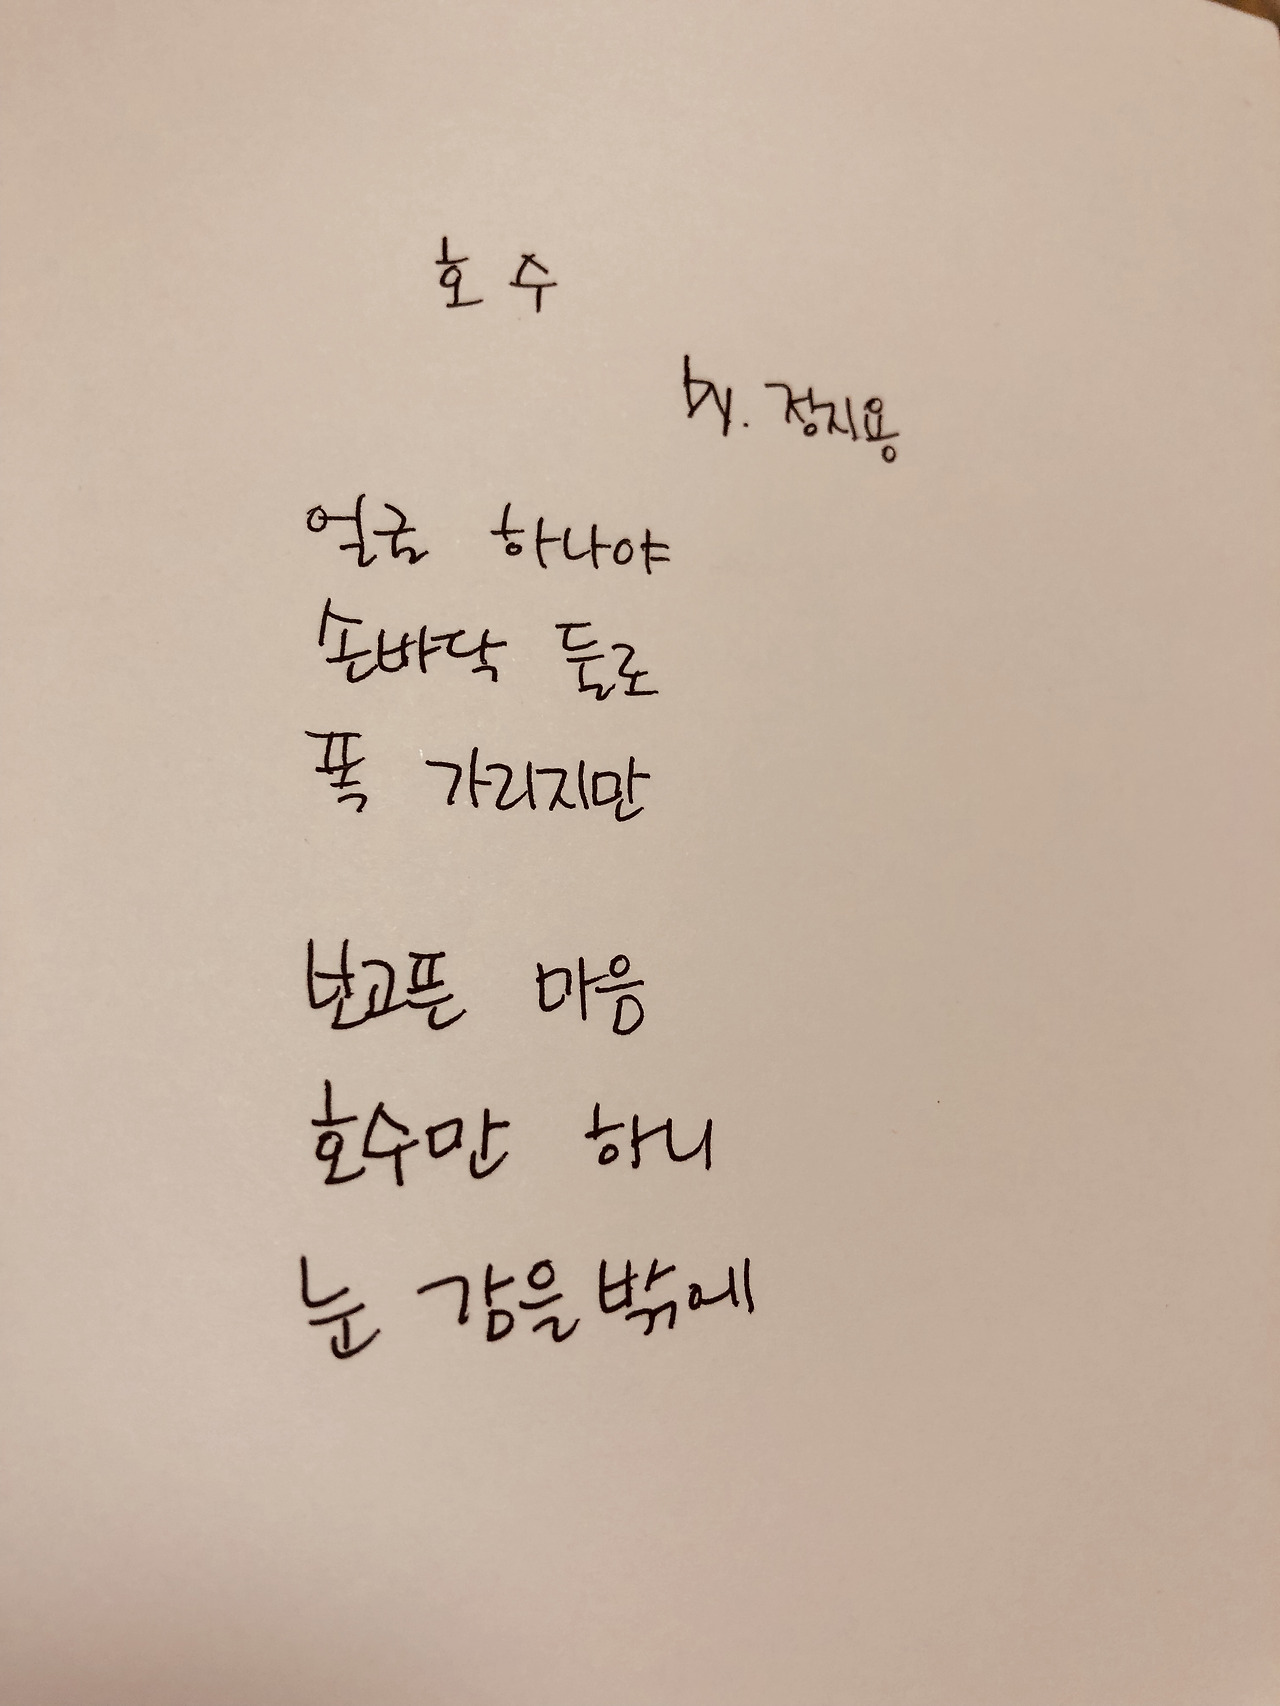 호수
by. 정지용
얼굴 하나야
손바닥 둘로
폭 가리지만
보고픈 마음
호수만 하니
눈 감을 밖에